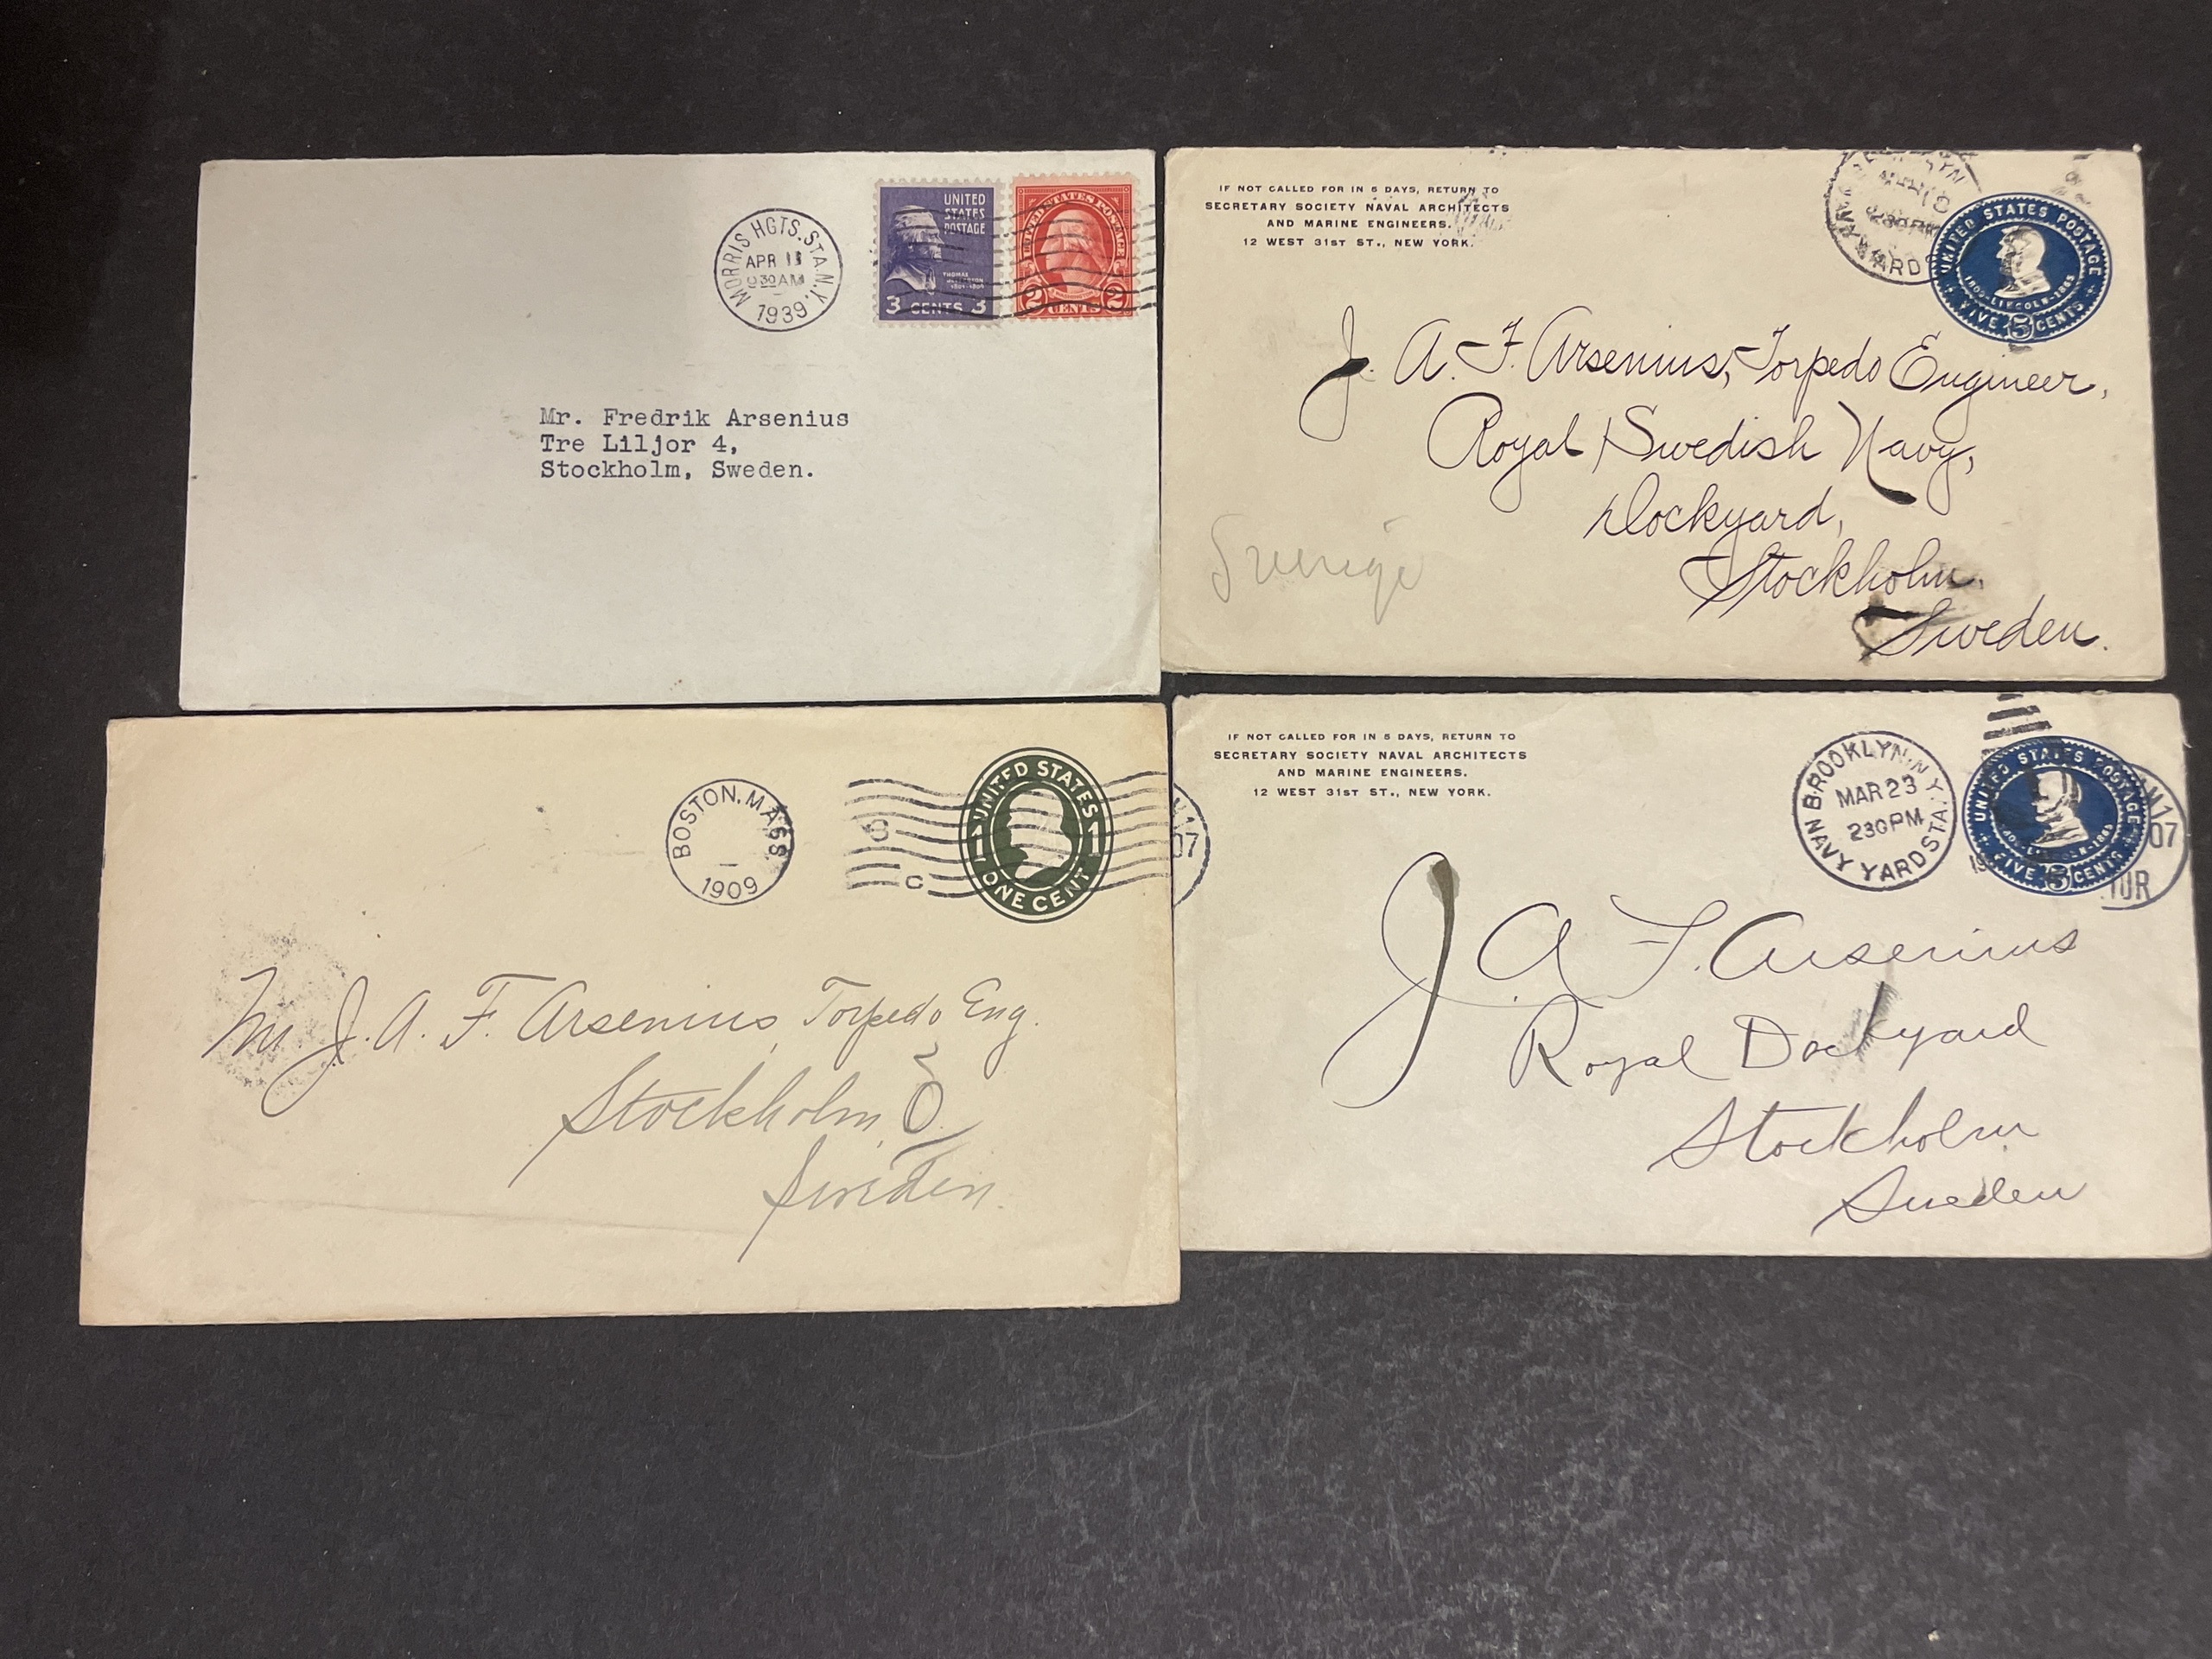 MORRIS HGTS. STA. N.Y.
APR 11
930 AM
1939
UNITED
STATES
POSTAGE
THOMAS
JEFFERSON
3 CENTS 3
UNITED STATES POSTAGE
2 CENTS 2
Mr. Fredrik Arsenius
Tre Liljor 4,
Stockholm, Sweden.
IF NOT CALLED FOR IN 5 DAYS, RETURN TO
SECRETARY SOCIETY NAVAL ARCHITECTS
AND MARINE ENGINEERS.
12 WEST 31ST ST., NEW YORK.
NAVY YARD
UNITED STATES POSTAGE
1809-LINCOLN-1865
FIVE 5 CENTS
J. A. F. Arsenius, Torpedo Engineer,
Royal Swedish Navy,
Dockyard,
Stockholm.
Sweden.
Sverige
BOSTON, MASS
1909
C
UNITED STATES
1 1
ONE CENT
Mr J. A. F. Arsenius, Torpedo Eng.
Stockholm, Ö
Sweden.
IF NOT CALLED FOR IN 5 DAYS, RETURN TO
SECRETARY SOCIETY NAVAL ARCHITECTS
AND MARINE ENGINEERS.
12 WEST 31ST ST., NEW YORK.
BROOKLYN, N.Y.
MAR 23
230 PM
NAVY YARD STA.
UNITED STATES POSTAGE
FIVE 5 CENTS
07
07
J A F. Arsenius
Royal Dockyard
Stockholm
Sweden